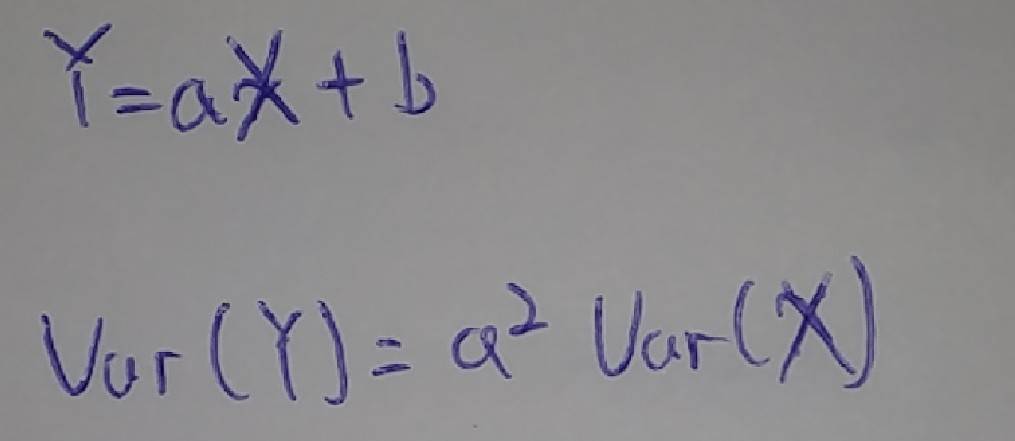 Y=aX+b
Var(Y)=a² Var(X)